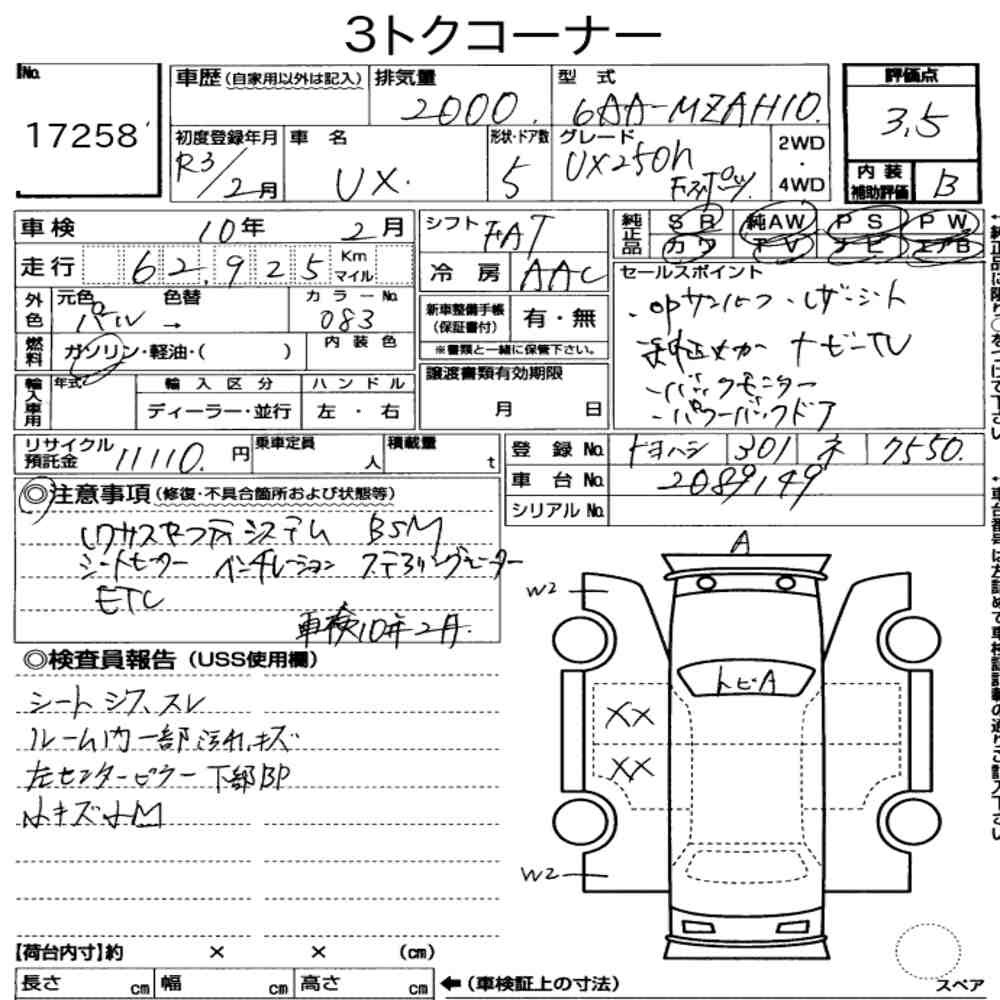 3トクコーナー
No. 17258
車歴 (自家用以外は記入) 排気量 2000 型式 6AA-MZAH10
評価点 3.5
初度登録年月 R3/2月 車名 UX 形状・ドア数 5 グレード UX250h Fスポーツ 2WD・4WD
内装補助評価 B
車検 10年 2月
シフト FAT
純正品 SR 純AW PS PW
カワ TV ナビ エアB
走行 62,925 Km マイル
冷房 AAC
セールスポイント
・OPサンルーフ・レザーシート
純正メーカーナビ・TV
・バックモニター
・パワーバックドア
外色 元色 パール → 色替 カラーNo. 083
新車整備手帳 (保証書付) 有・無
※書類と一緒に保管下さい。
燃料 ガソリン・軽油・( ) 内装色
輸入車用 年式 輸入区分 ハンドル
ディーラー・並行 左・右
譲渡書類有効期限
月 日
リサイクル預託金 11110 円 乗車定員 人 積載量 t
登録No. トヨハシ 301 ネ 7550
車台No. 2089149
シリアルNo.
◎注意事項 (修復・不具合箇所および状態等)
システム BSM
シートヒーター ベンチレーション ステアリングヒーター
ETC
車検10年2月
◎検査員報告 (USS使用欄)
シートシワ、スレ
ルーム内一部汚れ、キズ
左センターピラー下部BP
小キズ小M
A
W2
トビA
XX
XX
W2
【荷台内寸】約 × × (cm)
長さ cm 幅 cm 高さ cm ←(車検証上の寸法)
スペア